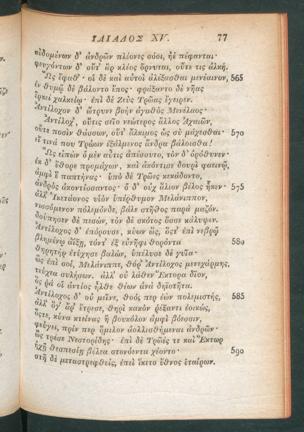 ΙΛΙΑΔΟΣ XV. 77
αἰδομένων δ᾽ ἀνδρῶν πλέονες σόοι, ἠὲ πέφανται·
φευγόντων δ᾽ οὔτ᾽ ἂρ κλέος ὄρνυται, οὔτε τις ἀλκή.
Ὣς ἔφαθ᾽· οἱ δὲ καὶ αὐτοὶ ἀλέξασθαι μενέαινον, 565
ἐν θυμῷ δὲ βάλοντο ἔπος· φράξαντο δὲ νῆας
ἕρκεϊ χαλκείῳ· ἐπὶ δὲ Ζεὺς Τρῶας ἔγειρεν.
Ἀντίλοχον δ᾽ ὤτρυνε βοὴν ἀγαθὸς Μενέλαος·
Ἀντίλοχ᾽, οὔτις σεῖο νεώτερος ἄλλος Ἀχαιῶν,
οὔτε ποσὶν θάσσων, οὔτ᾽ ἄλκιμος ὡς σὺ μάχεσθαι· 570
εἴ τινά που Τρώων ἐξάλμενος ἄνδρα βάλοισθα!
Ὣς εἰπὼν ὁ μὲν αὖτις ἀπέσσυτο, τὸν δ᾽ ὀρόθυνεν·
ἐκ δ᾽ ἔθορε προμάχων, καὶ ἀκόντισε δουρὶ φαεινῷ,
ἀμφὶ ἓ παπτήνας· ὑπὸ δὲ Τρῶες κεκάδοντο,
ἀνδρὸς ἀκοντίσσαντος· ὁ δ᾽ οὐχ ἅλιον βέλος ἧκεν· 575
ἀλλ᾽ Ἱκετάονος υἱὸν ὑπέρθυμον Μελάνιππον,
νισσόμενον πόλεμόνδε, βάλε στῆθος παρὰ μαζόν.
δούπησεν δὲ πεσὼν, τὸν δὲ σκότος ὄσσε κάλυψεν.
Ἀντίλοχος δ᾽ ἐπόρουσε, κύων ὣς, ὅστ᾽ ἐπὶ νεβρῷ
βλημένῳ ἀΐξῃ, τόντ᾽ ἐξ εὐνῆφι θορόντα 580
θηρητὴρ ἐτύχησε βαλὼν, ὑπέλυσε δὲ γυῖα·
ὣς ἐπὶ σοὶ, Μελάνιππε, θόρ᾽ Ἀντίλοχος μενεχάρμης,
τεύχεα συλήσων. ἀλλ᾽ οὐ λάθεν Ἕκτορα δῖον,
ὅς ῥά οἱ ἀντίος ἦλθε θέων ἀνὰ δηϊοτῆτα.
Ἀντίλοχος δ᾽ οὐ μεῖνεν, θοός περ ἐὼν πολεμιστής, 585
ἀλλ᾽ ὅγ᾽ ἄρ᾽ ἔτρεσε, θηρὶ κακὸν ῥέξαντι ἐοικώς,
ὅστε, κύνα κτείνας ἢ βουκόλον ἀμφὶ βόεσσιν,
φεύγει, πρίν περ ὅμιλον ἀολλισθήμεναι ἀνδρῶν·
ὣς τρέσε Νεστορίδης· ἐπὶ δὲ Τρῶές τε καὶ Ἕκτωρ
ἠχῇ θεσπεσίῃ βέλεα στονόεντα χέοντο· 590
στῆ δὲ μεταστρεφθείς, ἐπεὶ ἵκετο ἔθνος ἑταίρων.